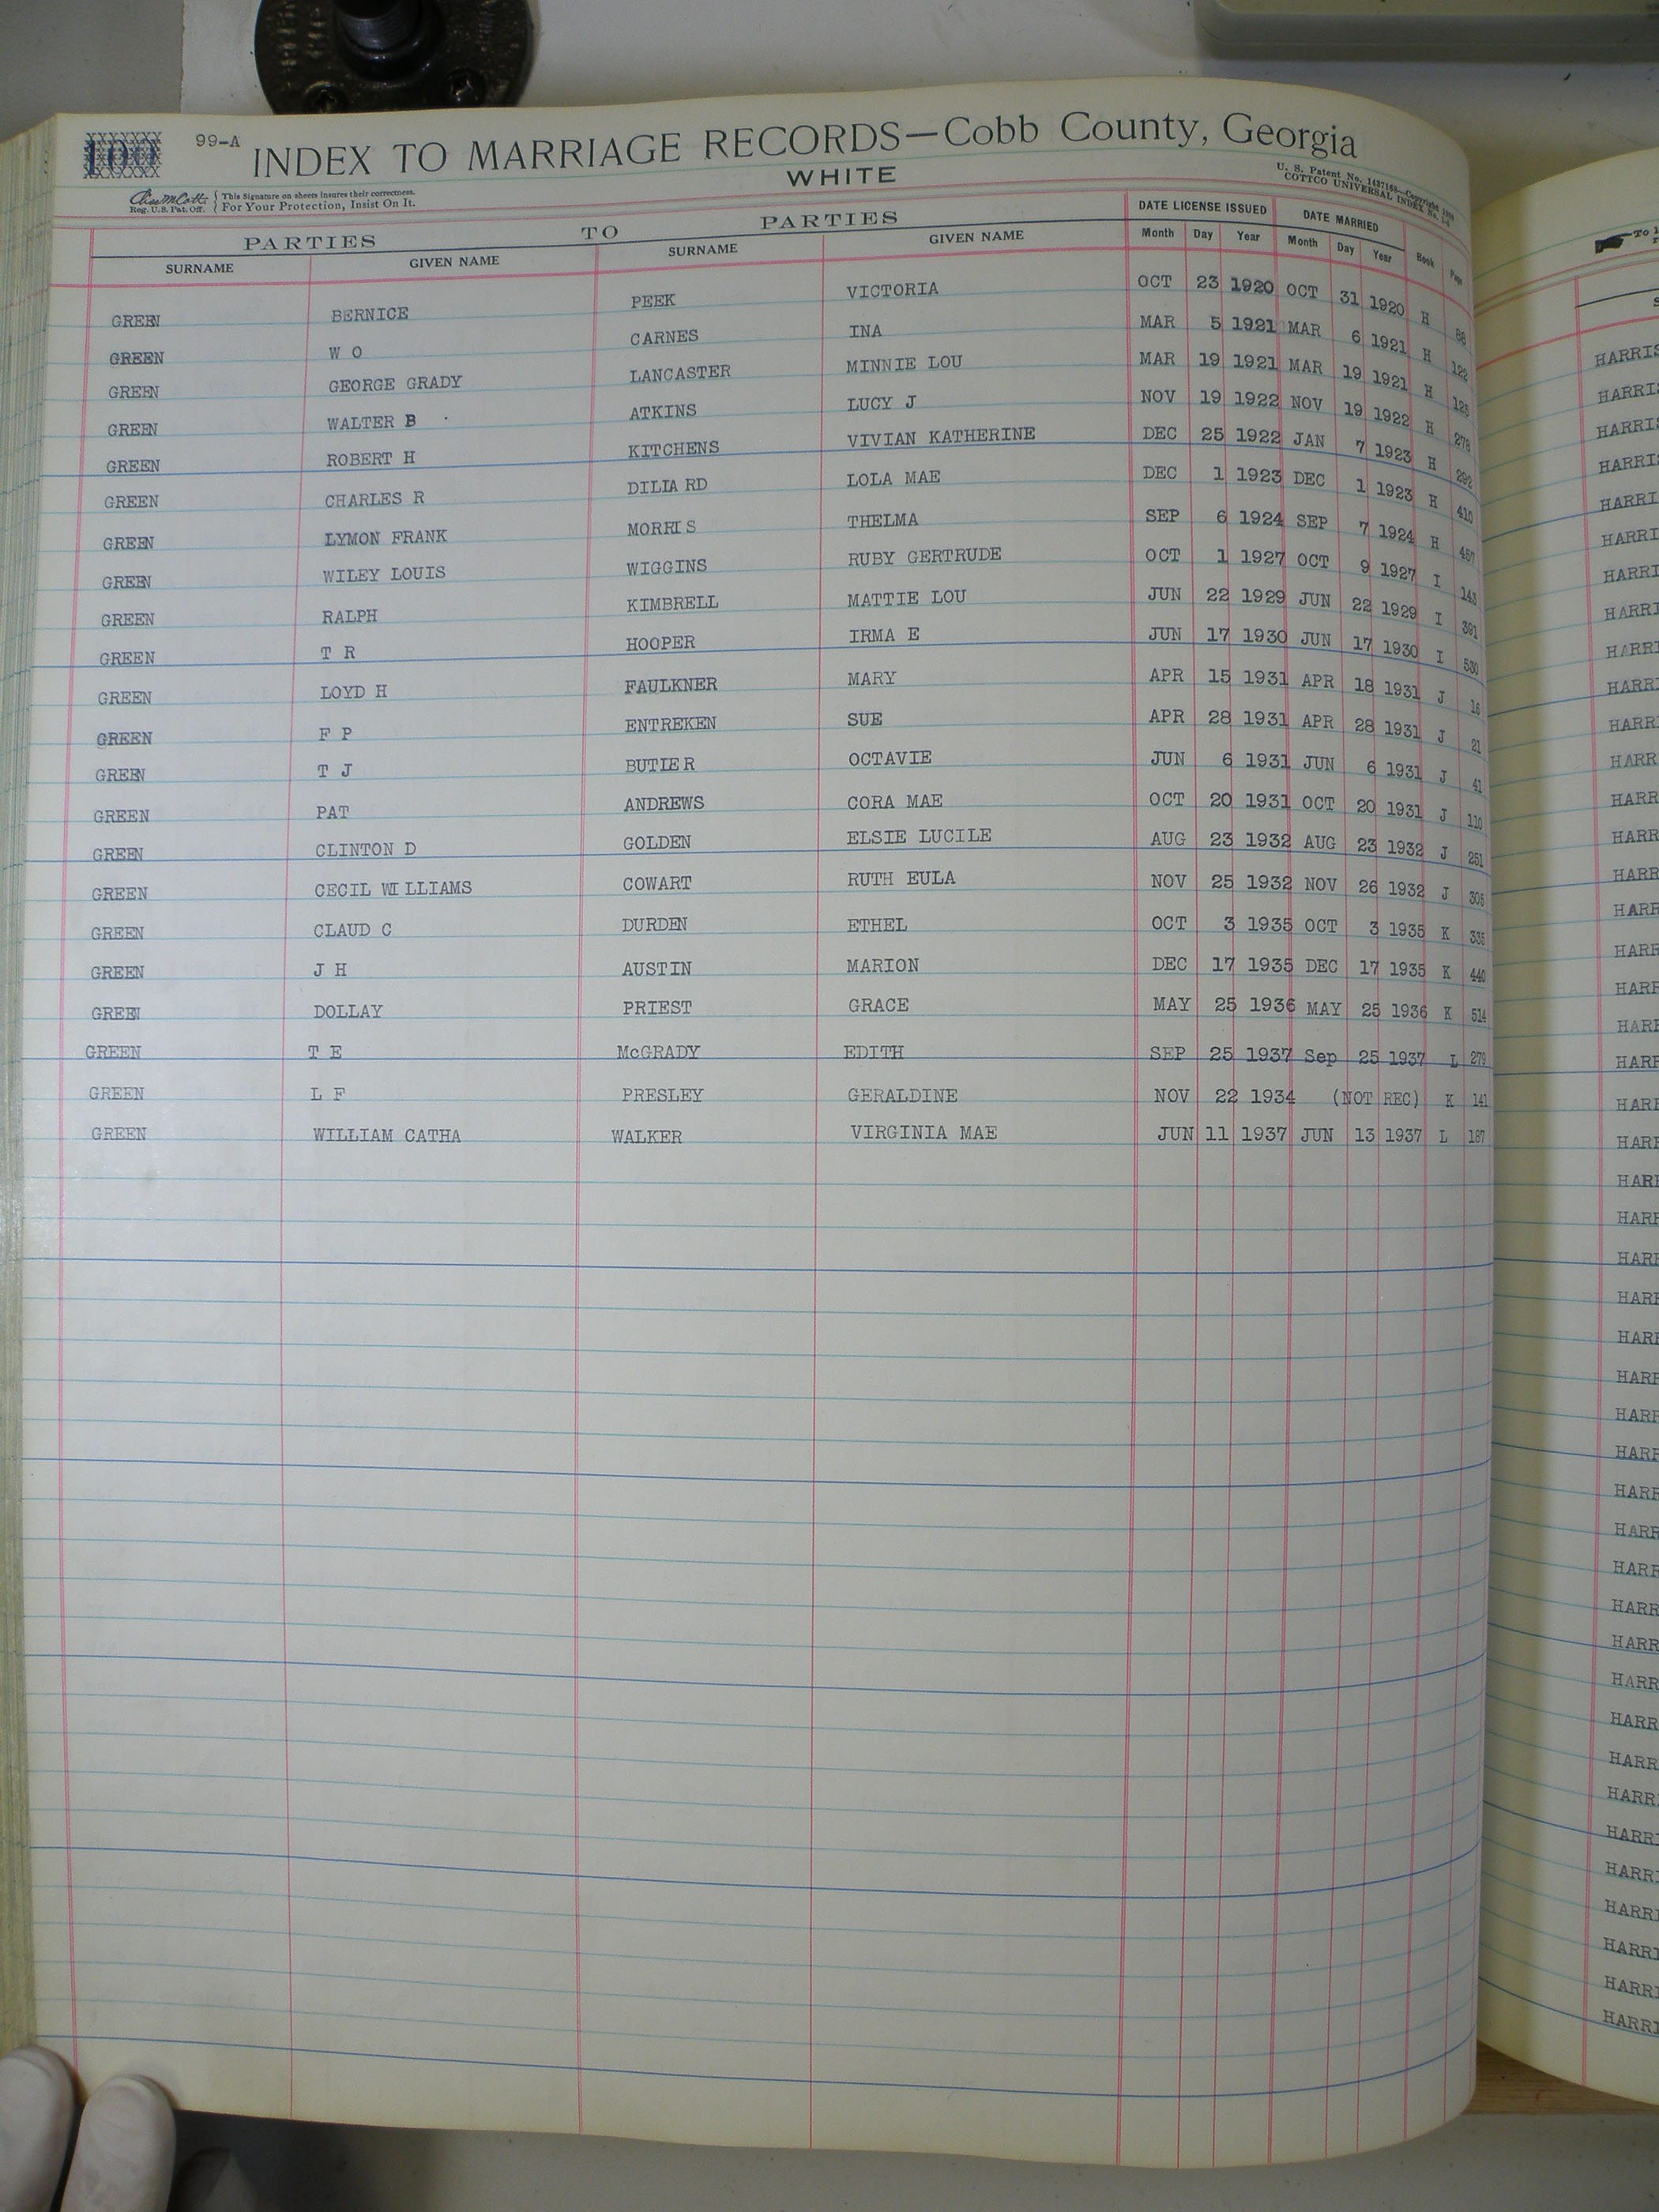 100 99-A INDEX TO MARRIAGE RECORDS—Cobb County, Georgia
WHITE
Reg. U.S. Pat. Off. { This Signature on sheets insures their correctness. For Your Protection, Insist On It.
U. S. Patent No. 1487168—Copyright
COTTCO UNIVERSAL INDEX No.
PARTIES TO PARTIES DATE LICENSE ISSUED DATE MARRIED
SURNAME GIVEN NAME SURNAME GIVEN NAME Month Day Year Month Day Year Book Page
GREEN BERNICE PEEK VICTORIA OCT 23 1920 OCT 31 1920 H
GREEN W O CARNES INA MAR 5 1921 MAR 6 1921 H 122
GREEN GEORGE GRADY LANCASTER MINNIE LOU MAR 19 1921 MAR 19 1921 H 125
GREEN WALTER B ATKINS LUCY J NOV 19 1922 NOV 19 1922 H 278
GREEN ROBERT H KITCHENS VIVIAN KATHERINE DEC 25 1922 JAN 7 1923 H 292
GREEN CHARLES R DILLARD LOLA MAE DEC 1 1923 DEC 1 1923 H 410
GREEN LYMON FRANK MORRIS THELMA SEP 6 1924 SEP 7 1924 H 457
GREEN WILEY LOUIS WIGGINS RUBY GERTRUDE OCT 1 1927 OCT 9 1927 I 143
GREEN RALPH KIMBRELL MATTIE LOU JUN 22 1929 JUN 22 1929 I 391
GREEN T R HOOPER IRMA E JUN 17 1930 JUN 17 1930 I 530
GREEN LOYD H FAULKNER MARY APR 15 1931 APR 18 1931 J 16
GREEN F P ENTREKEN SUE APR 28 1931 APR 28 1931 J 21
GREEN T J BUTLER OCTAVIE JUN 6 1931 JUN 6 1931 J 41
GREEN PAT ANDREWS CORA MAE OCT 20 1931 OCT 20 1931 J 110
GREEN CLINTON D GOLDEN ELSIE LUCILE AUG 23 1932 AUG 23 1932 J 251
GREEN CECIL WILLIAMS COWART RUTH EULA NOV 25 1932 NOV 26 1932 J 305
GREEN CLAUD C DURDEN ETHEL OCT 3 1935 OCT 3 1935 K 335
GREEN J H AUSTIN MARION DEC 17 1935 DEC 17 1935 K 440
GREEN DOLLAY PRIEST GRACE MAY 25 1936 MAY 25 1936 K 514
GREEN T E McGRADY EDITH SEP 25 1937 Sep 25 1937 L 279
GREEN L F PRESLEY GERALDINE NOV 22 1934 (NOT REC) K 141
GREEN WILLIAM CATHA WALKER VIRGINIA MAE JUN 11 1937 JUN 13 1937 L 187